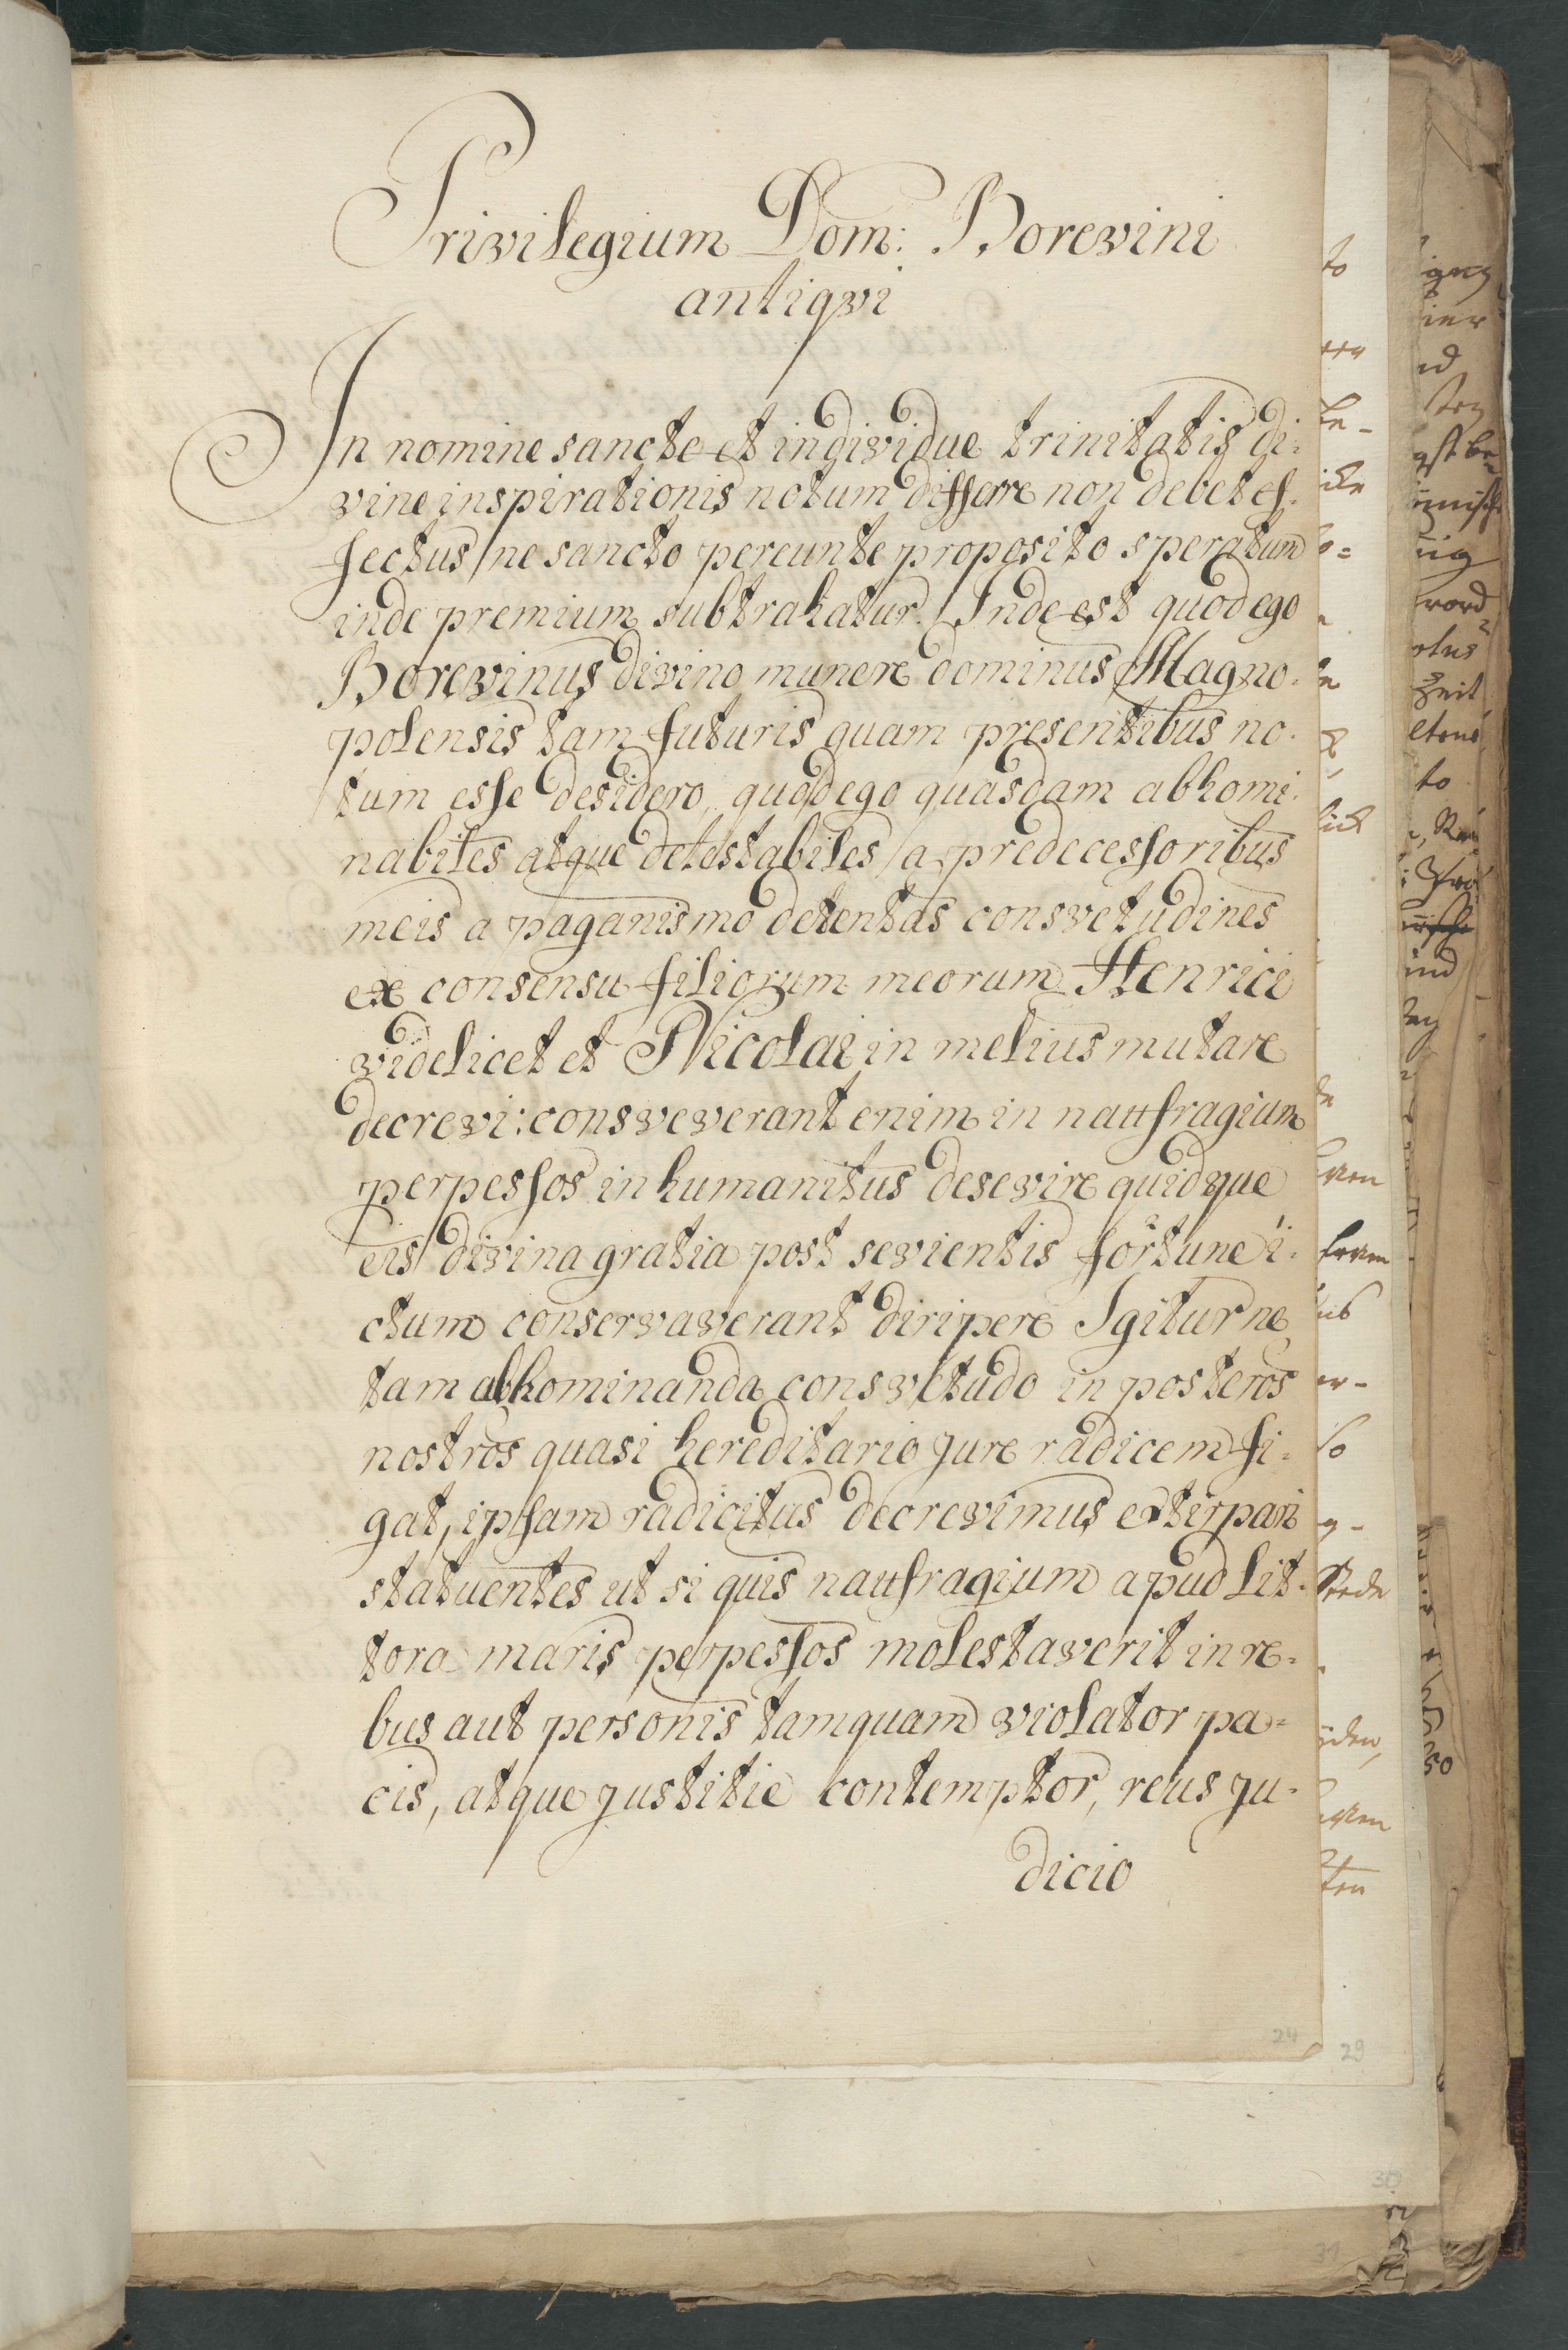 Privilegium Dom: Borewini
antiqvi
In nomine sancte et individue trinitatis di:
vine inspirationis notum differre non debet ef.
fectus / ne sancto pereunte proposito speratum
inde premium subtrahatur. Inde est quod ego
Borewinus divino munere dominus Magno.
polensis tam futuris quam presentibus no.
tum esse desidero, quod ego quasdam abhomi.
nabiles atque detestabiles / a predecessoribus
meis a paganismo detentas consvetudines
ex consensu filiorum meorum Henrici
videlicet et Nicolai in melius mutare
decrevi: consveverant enim in naufragium
perpessos inhumanitus desevire quidque
eis divina gratia post sevientis fortune i:
ctum conservaverant diripere Igitur ne
tam abhominanda consvetudo in posteros
nostros quasi hereditario jure radicem fi:
gat, ipsam radicitus decrevimus extirpari
statuentes ut si quis naufragium apud lit:
tora maris perpessos molestaverit in re:
bus aut personis tamquam violator pa=
cis, atque justitie contemptor, reus ju.
dicio
24
29
30
31